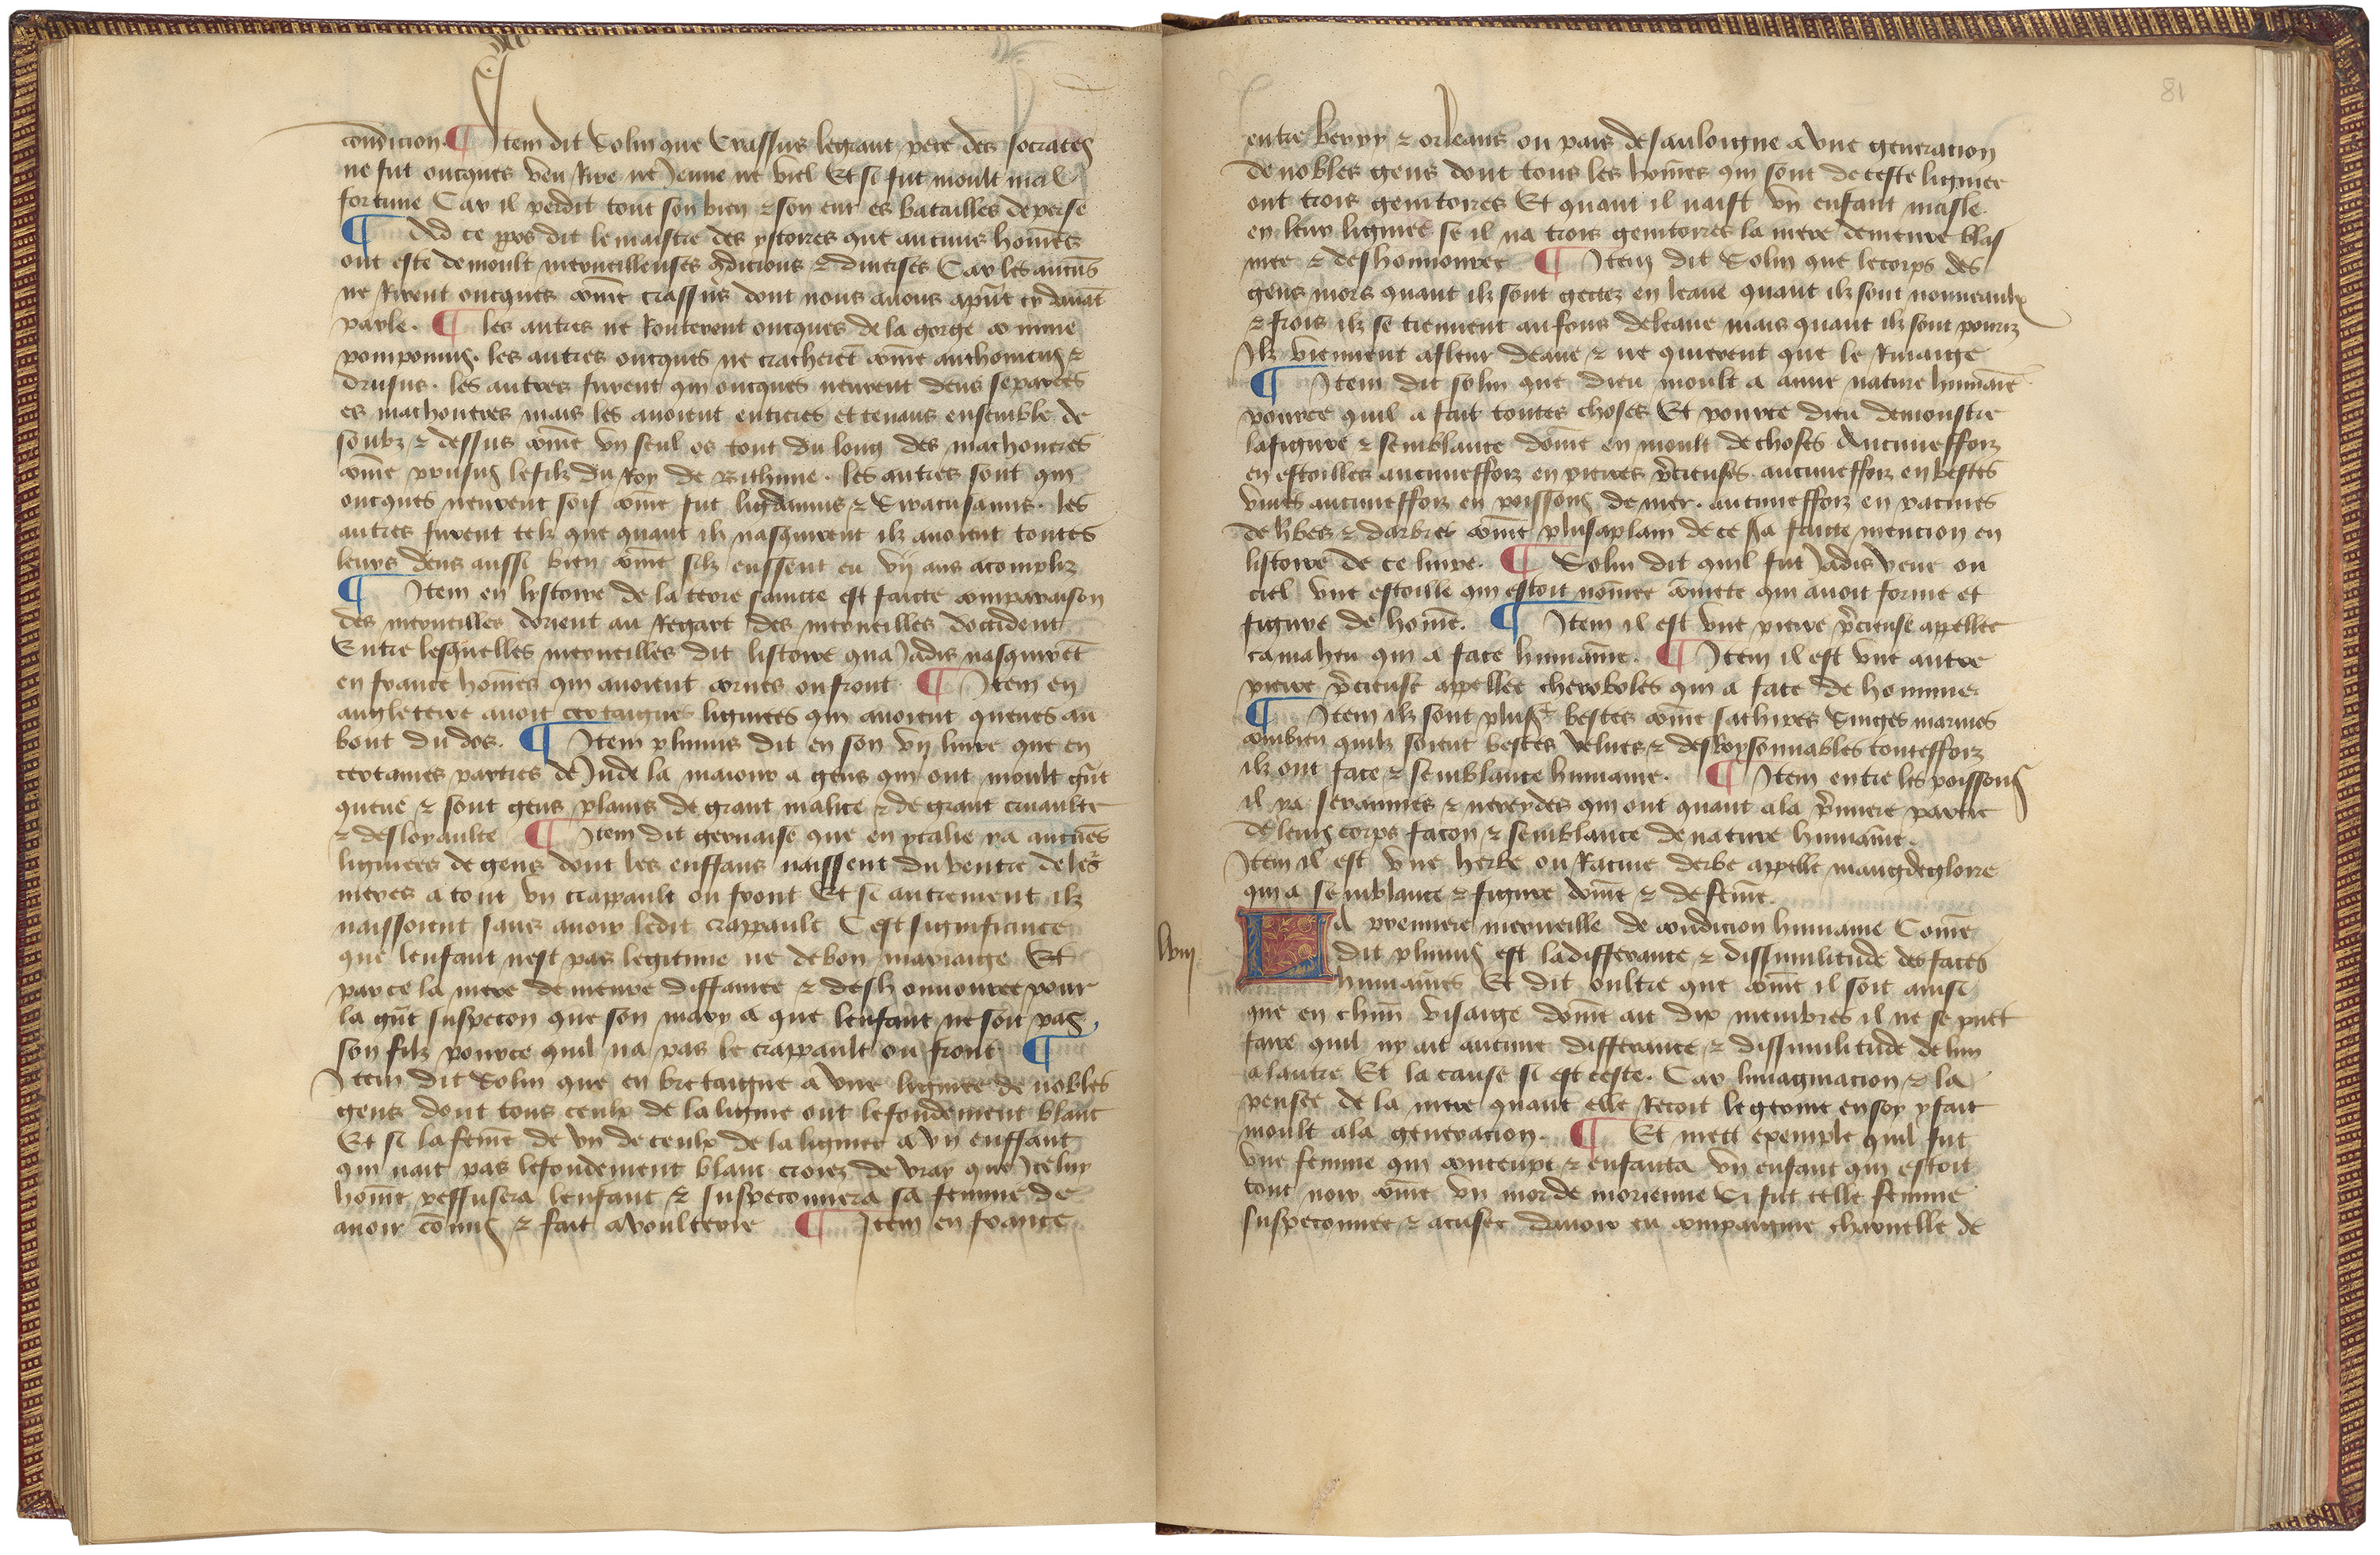 condicion ¶ Item dit Solin que Crassus le grant pere des socrates
ne fut oncques veu Rire ne Jeune ne viel Et si fut moult mal
fortune Car il perdit tout son bien & son eur es batailles de perse
¶ Ad ce ppos dit le maistre des ystoires que aucuns hom̄es
ont este de moult merueilleuses 9dicions & diuerses Car les aucūs
ne Rirent oncques com̄e crassus dont nous auons apn̄t cy deuāt
parle. ¶ les autres ne Routerent oncques de la gorge comme
pomponius. les autres oncques ne cracherēt com̄e anthonius &
drusus. les autres furent qui oncques neurent dens separees
es machoueres mais les auoient entieres et tenans ensemble de
soubz & dessus com̄e vn seul os tout du long des machoueres
com̄e prusius le filz du Roy de Bithinie. les autres sont qui
oncques neurent soif com̄e fut ligdamus & Siracusanus. les
autres furent telz que quant ilz nasquirent ilz auoient toutes
leurs dens aussi bien com̄e silz eussent eu vij ans acompliz
¶ Item en listoire de la terre saincte est faicte comparaison
des merueilles dorient au Regart des merueilles doccident
Entre lesquelles merueilles dit listoire qua Jadis nasquirēt
en france hom̄es qui auoient cornes ou front ¶ Item en
angleterre auoit certaignes lignees qui auoient queues au
bout du dos. ¶ Item plinius dit en son vij liure que en
certaines parties de Inde la maiour a gens qui ont moult gn̄t
queue & sont gens plains de grant malice & de grant cruaulte
& desloyaulte ¶ Item dit geruaise que en ytalie ya aucūes
lignees de gens dont les enffans naissent du ventre de les
meres a tout vn crappault ou front Et si autrement ilz
naissoient sans auoir ledit crappault Cest signifiance
que lenfant nest pas legitime ne de bon mariaige Et
par ce la mere demeure diffamee & deshonnouree pour
la gn̄t suspecon que son mary a que lenfant ne soit pas
son filz pource quil na pas le crappault ou front ¶
Item dit Solin que en bretaigne a vne lignee de nobles
gens dont tous ceulx de la lignie ont le fondement blanc
Et si la fem̄e de vn de ceulx de la lignee a vn enffant
qui nait pas le fondement blanc croiez de vray que Iceluy
hom̄e reffusera lenfant & suspeconnera sa femme de
auoir com̄is & fait avoulterie ¶ Item en france
entre berry & orleans ou pais de sauloigne a vne generacion
de nobles gens dont tous les hom̄es qui sont de ceste lignee
ont trois genitoires Et quant il naist vn enfant masle
en leur lignee se il na trois genitoires la mere demeure blas
mee & deshonnouree ¶ Item dit Solin que le corps des
gens mors quant ilz sont gectez en leaue quant ilz sont nouueaulx
& frois ilz se tiennent au fons de leaue mais quant ilz sont pourriz
Ilz viennent a fleur deaue & ne quierent que le Riuaige
¶ Item dit solin que dieu moult a ayme nature humaīe
pource quil a fait toutes choses Et pource dieu demonstre
la figure & semblance dom̄e en moult de choses Aucuneffoiz
en estoilles aucuneffoiz en pierres p̄cieuses. aucuneffoiz en bestes
viues aucuneffoiz en poissons de mer. aucuneffoiz en racines
de h̄bes & darbres com̄e plus a plain de ce sa faicte mencion en
listoire de ce liure. ¶ Solin dit quil fut Jadis veue ou
ciel vne estoille qui estoit nom̄ee com̄ete qui auoit forme et
figure de hom̄e. ¶ Item il est vne pierre p̄cieuse appellee
camaheu qui a face humaine. ¶ Item il est vne autre
pierre p̄cieuse appellee cheroboles qui a face de homme
¶ Item ilz sont plus̄rs bestes com̄e sathires Singes marines
combien quilz soient bestes velues & desraysonnables touteffoiz
ilz ont face & semblance humaine. ¶ Item entre les poissons
il ya seraunes & nereydes qui ont quant a la p̄miere partie
de leurs corps facon & semblance de nature humaine.
Item il est vne herbe ou Racine derbe appelle mangdegloire
qui a semblance & figure dom̄e & de fem̄e.
La premiere merueille de condicion humaine Com̄e
lviij
dit plinius est la differance & dissimilitude des faces
humaines Et dit oultre que com̄e il soit ainsi
que en chūn visaige dom̄e ait dix membres il ne se puet
faire quil ny ait aucune differance & dissimilitude de lun
a lautre Et la cause si est ceste. Car limaginacion & la
pensee de la mere quant elle Recoit le geome en soy y fait
moult a la generacion. ¶ Et mett exemple quil fut
vne femme qui conceupt & enfanta vn enfant qui estoit
tout noir com̄e vn mor de morienne Si fut celle femme
suspeconnee & acusee dauoir eu compaignie charnelle de
81